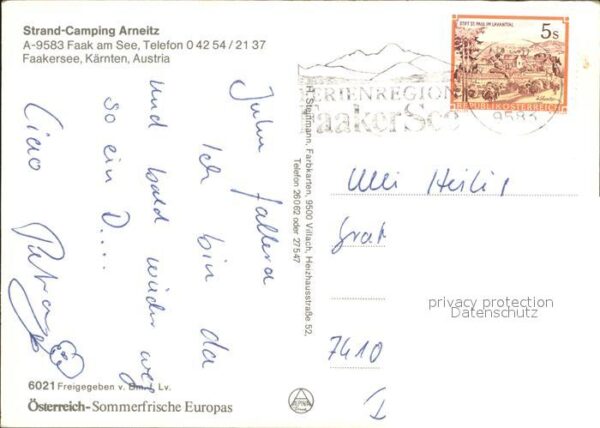 Strand-Camping Arneitz
A-9583 Faak am See, Telefon 0 42 54 / 21 37
Faakersee, Kärnten, Austria
STIFT ST. PAUL IM LAVANTTAL
5s
REPUBLIK ÖSTERREICH
ERIENREGION
aakerSee
9583
Juhu fallera
Ich bin da
und bald wieder weg
so ein D....
Ciao
Petra
H. Steinmann, Farbkarten, 9500 Villach, Heizhausstraße 52,
Telefon 26062 oder 27547
Ulli Heilig
Grat
7410
privacy protection
Datenschutz
6021 Freigegeben v. Lv.
Österreich-Sommerfrische Europas